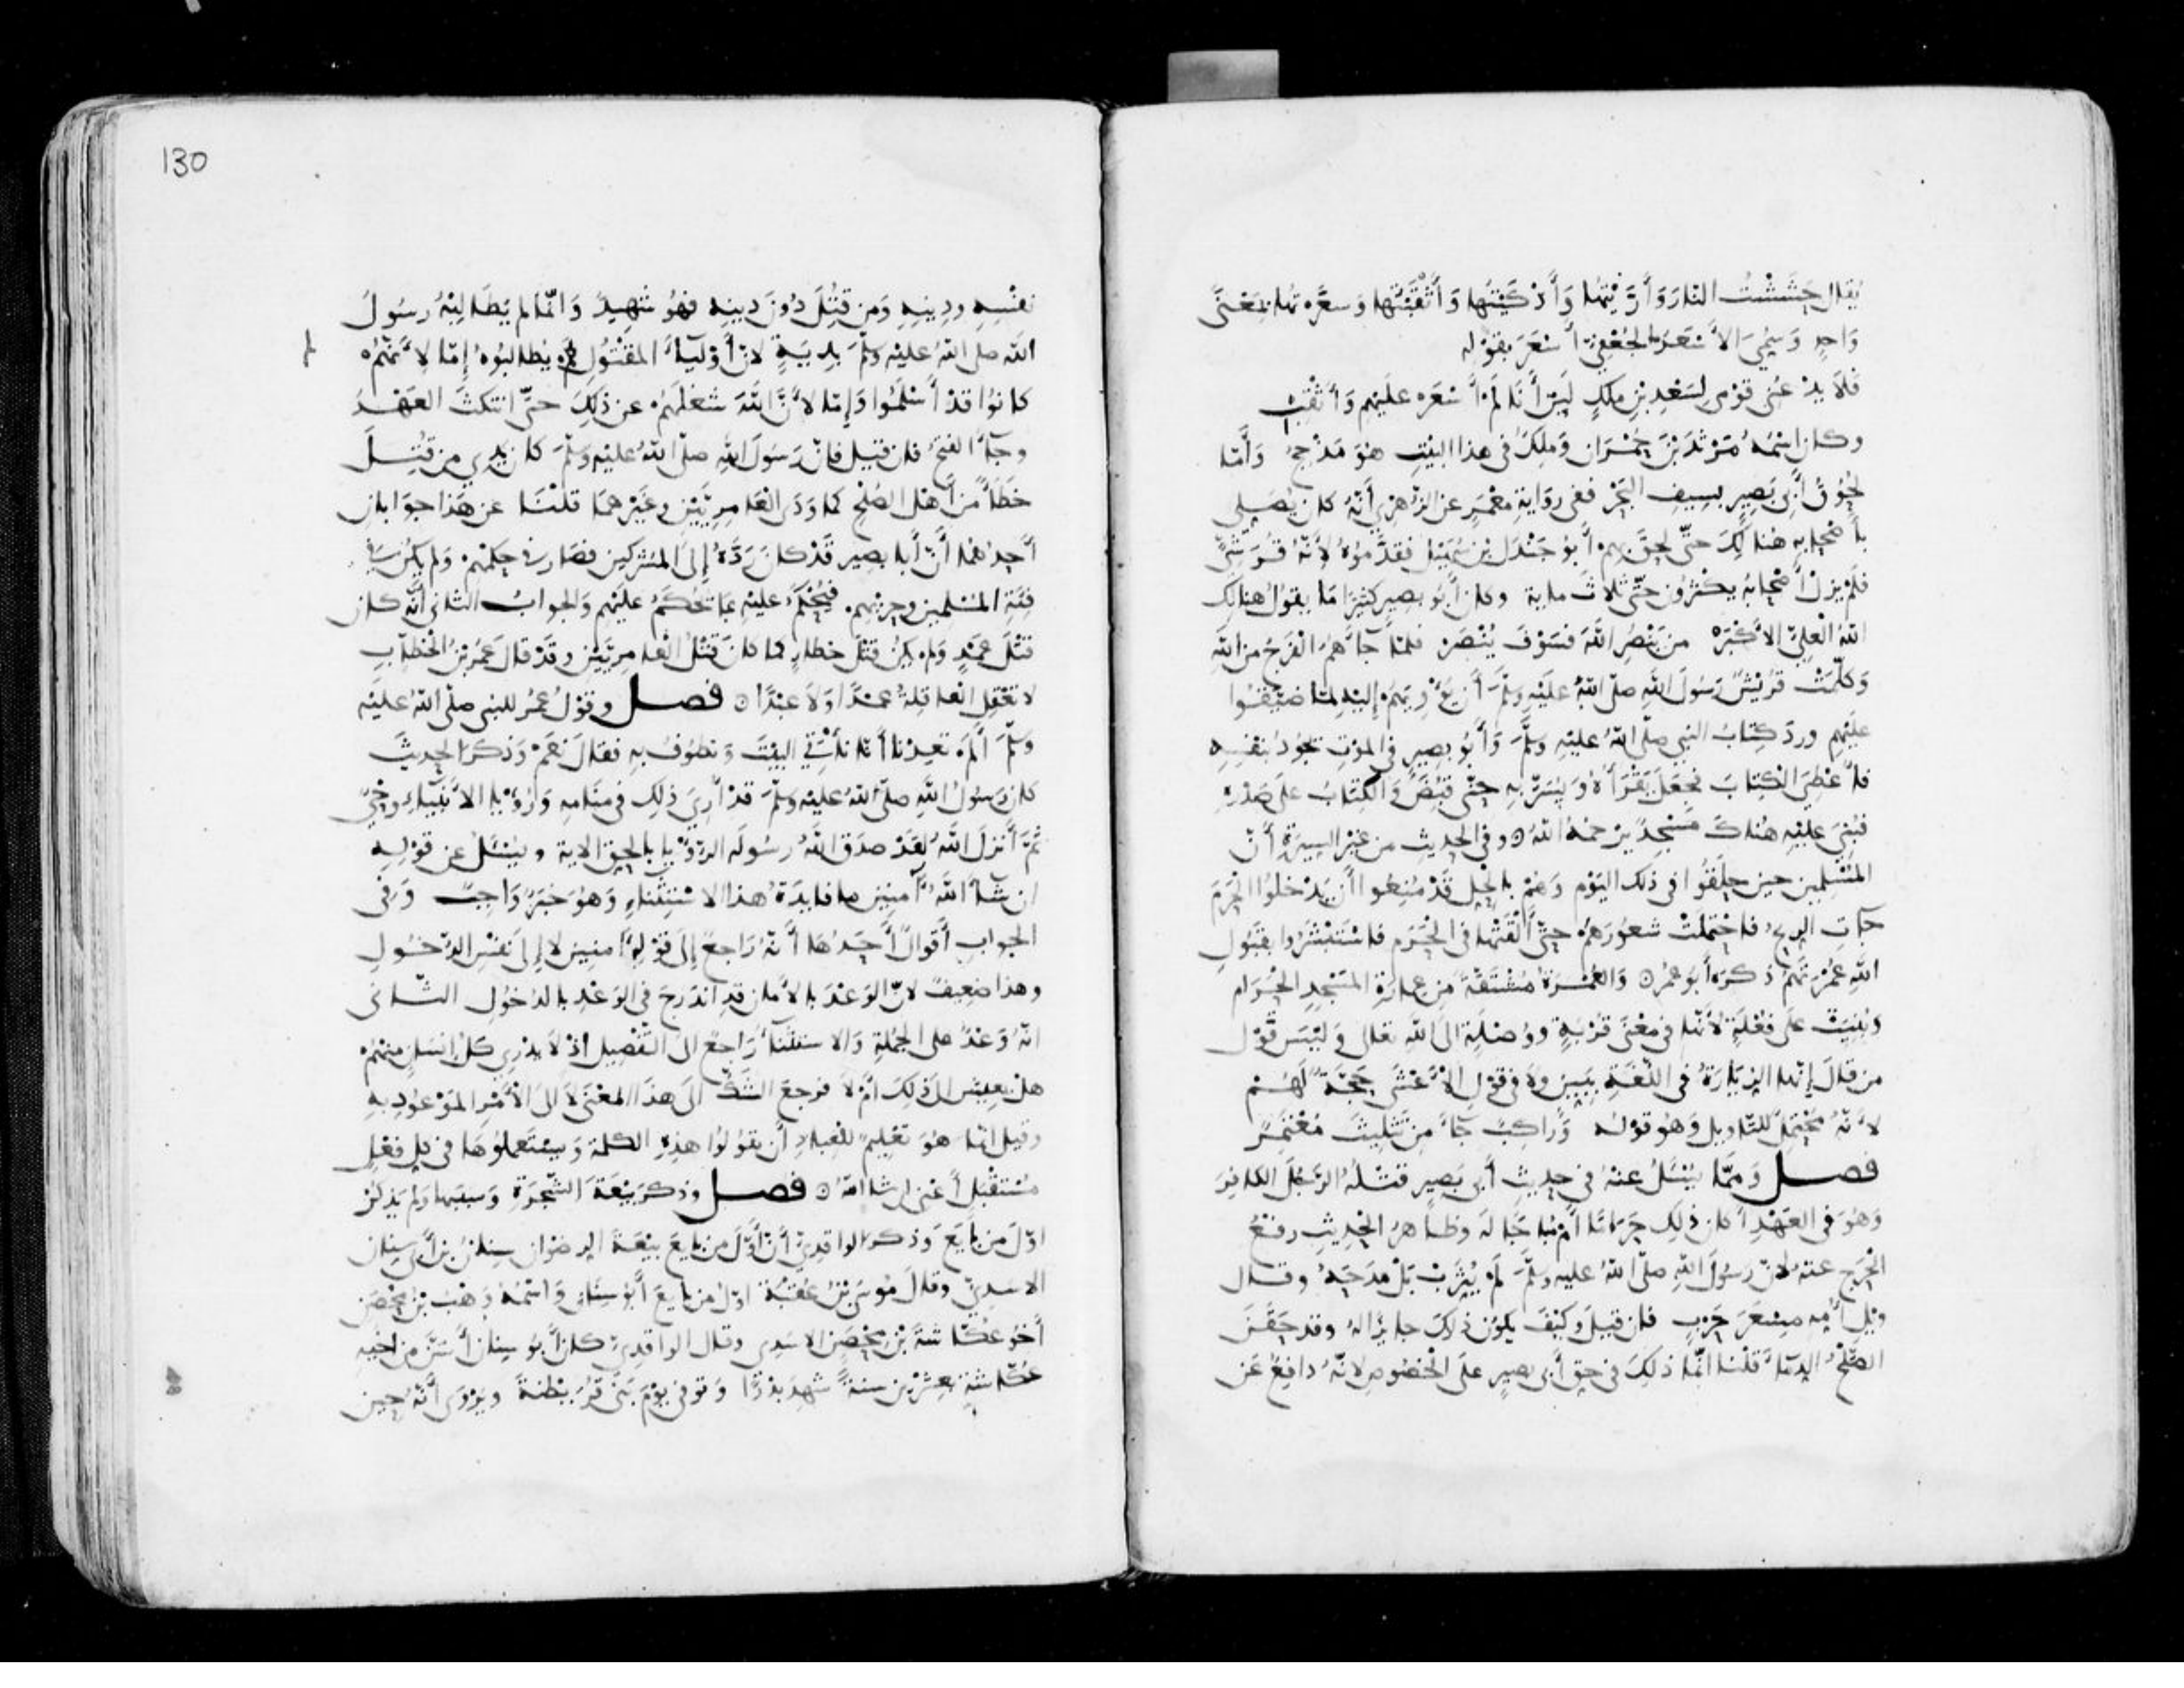 يُقال حَشَشْتُ النارَ وَأَرَّيْتها وَأَذْكَيْتُها وَأَثْقَبْتُها وَسعَّرتها بمعْنىً
وَاحدٍ وَسُمِّيَ الأَسْعَرُ الجُعْفِيّ أَسْعَرَ بقوْله
فَلَا يدْعُنى قوْمى لِسَعْدِ بْنِ مٰلكٍ لَئِنْ أَنَا لَمْ أَسْعَرْ عليْهِم وَأُثْقِبْ
وكان اسْمُهُ مَرْثَدَ بْنَ حُمْرَان وَمٰلِكٌ فى هذا البيْتِ هوَ مَذْحِجٌ وَأَمَّا
لحُوقُ أَبى بَصيرٍ بسِيفِ البَحْر ففى روَايةِ معْمَرٍ عن الزُّهْرىّ أَنّهُ كان يُصَلى
بأَصْحابهِ هنالكَ حتّى لحِقَ بهم أَبو جَنْدَل بْنُ سُهَيْل فقدَّموُهُ لأَنّهُ قُرَشىٌّ
فلَمْ يزلْ أَصْحابُهُ يكْثرُون حتّى ثلاثَ ماية وكان أَبُو بصير كثيرًا مّا يقولُ هنالكَ
اللهُ الْعَلىّ الأَكْبَرْ من يَنْصُرِ اللهَ فسَوْفَ يُنْصَرْ فلمّا جآءَهُمُ الْفَرَجُ من الله
وَكلّمَتْ قُرَيْشٌ رَسُولَ اللهِ صلّى اللهُ علَيْهِ وسلّمَ أن يُؤْويَهُمْ إليْهِ لمّا ضيّقُوا
عليْهِم وردَ كتابُ النبى صلّى اللهُ عليْهِ وسلّمَ وَأَبُو بصيرٍ فى الموْتِ يجُودُ بنفْسِهِ
فأُعْطىَ الْكتابَ فجعَلَ يقْرَأُهُ وَيُسَرُّ بهِ حتّى قُبِضَ وَالْكتَابُ على صَدْرهِ
فبُنىَ عليْهِ هُناكَ مَسْجِدٌ يرْحَمهُ اللهُ وفى الحَديثِ من غيْرِ السِيرَةِ أَنّ
المُسْلِمين حين حلَقُوا فى ذلك اليَوْمِ وَهُمْ بالحِلِّ قدْ مُنعُوا أَن يَدْخلُوا الْحَرَمَ
جآءت الريحُ فاحْتملتْ شعُورَهُمْ حتّى أَلْقَتْها فى الْحَرَم فاسْتَبْشَرُوا بقَبُولِ
اللهِ عُمْرتَهُمْ ذكرهُ أَبُو عمرَ وَالعُمْرَةُ مُشْتقّةٌ من عمارَةِ المسْجِدِ الْحَرَام
وَبُنيَتْ على فُعْلَةٍ لأَنّها فى معْنَى قُرْبةٍ ووُصْلةٍ الى اللهِ تعٰلى وَليْسَ قوْل
من قالَ إنّها الزيَارَةُ فى اللّغَةِ بِبَيِّنٍ ولا فى قوْلِ الأَعْشَى حُجَّةٌ لَهُمْ
لأَنّهُ محْتَمِلٌ للتّاويل وَهُو قولُه وَرَاكِبٌ جَآءَ مِنْ تَثْلِيثَ مُعْتَمِرٌ
فصــل وَممّا يُسْئَلُ عنْهُ فى حديثِ أَبى بَصِيرٍ قتْلُهُ الرّجُلَ الكافِرَ
وَهُوَ فى العَهْدِ أَكان ذلِك حَرَامًا أَمْ مُباحًا لهُ وظاهرُ الحْديثِ رفْعُ
الْحَرَجِ عنهُ لأنّ رسُولَ اللهِ صلّى اللهُ عليْهِ وسلّمَ لمْ يُثَرِّبْ بَلْ مدَحَهُ وقال
ويْلُ أُمِّهِ مِسْعَرَ حَرْبٍ فإن قيلَ وَكيْفَ يكون ذلِكَ جايزًا لهُ وقد حَقَنَ
الصّلْحُ الدمآءَ قلْنا انّما ذلِكَ فى حقِّ أَبى بصيرٍ علَى الْخصُوصِ لأَنّهُ دافعَ عن
130
نفْسِهِ ودِينِهِ وَمن قُتِلَ دُونَ دِينِهِ فهُوَ شَهيدٌ وَانّما لم يُطالِبْهُ رسُولُ
الله صلى اللهُ عليْهِ وسلّمَ بِدِيَةٍ لأنّ أَوْليآءَ المقْتُولِ لمْ يُطالبُوهُ إمّا لأَنّهُمْ
كانوُا قدْ أَسْلَمُوا وَإمّا لأَنّ اللهَ شغَلَهُمْ عن ذلِكَ حتّى انتكثَ العَهْدُ
وجآءَ الفتْحُ فان قيل فانّ رَسُولَ اللهِ صلّى اللهُ عليْهِ وَسلّمَ كان يدِى من قُتِلَ
خطَأً منْ أَهْلِ الصُلْحِ كما وَدَى الْعَامِريّيْن وغيْرهما قلْنَا عن هَذا جوَابان
أَحدُهُما أَنّ أَبا بصير قدْ كان رَدَّهُ إلى المشركين فصَار فى حكْمِهمْ وَلم يكُنْ فى
فِئَةِ المُسْلمين وحِزْبهِمْ فيُحْكَمُ عليْهِ بما يُحْكَمُ علَيْهِم وَالجوابُ الثانى أَنّه كان
قتْلَ عمْدٍ وَلمْ يكُنْ قتْلَ خطأ كما كان قَتْلُ الْعامرِيّيْن وقدْ قال عمَرُ بْنُ الْخطّابِ
لا تعْقِل الْعاقِلةُ عمْدًا وَلا عبْدًا فصــل وقوْلُ عُمَرَ للنبى صلّى اللهُ علَيْهِ
وسلّمَ أَلَمْ تعِدْنا أَنّا نأْتِى البيْتَ وَنطُوفُ بهِ فقالَ نعَمْ وَذكرَ الحديثَ
كان رَسُولُ اللهِ صلّى اللهُ عليْهِ وسلّمَ قدْ أُرِىَ ذلِك فى منَامِهِ وَرُؤيا الأَنْبيآءِ وحْىٌ
ثُمَّ أَنزلَ اللهُ لقَدْ صدَق اللهُ رسُولَه الرّؤْيا بالحقِّ الاية ويسْئَلُ عن قوْلِهِ
ان شآءَ اللهُ آمِنينَ ما فايدَةُ هذا الاسْتِثْناءِ وَهُوَ خبَرٌ وَاجبٌ وَفى
الجوابِ أَقوالٌ أَحَدُها أَنّهُ رَاجعٌ إلَى قوْلِهِ آمنين لا إلى نَفْسِ الدّخُولِ
وهذا ضعيفٌ لأنّ الوَعْدَ بالأَمان قدِ اندَرجَ فى الوَعْدِ بالدُخُول الثّانى
انّهُ وَعْدٌ على الجُمْلةِ وَالاستثنآءُ رَاجعٌ الى التّفْصِيل اذْ لا يدْرِى كلّ إنسٰنٍ منهُمْ
هلْ يعيش الى ذلِكَ أَمْ لا فرَجعَ الشّكّ الى هَذَا المعْنَى لا الَى الأَمْرِ المَوْعُودِ بِهِ
وقيل انّما هُوَ تعْليمٌ للعبادِ أَن يقُولُوا هذِهِ الكلمة وَيسْتعمِلُوها فى كل فعْلٍ
مُسْتقْبَلٍ أَعْنى ان شا اللهُ فصــل وذكرَ بَيْعَةَ الشّجَرَةِ وَسببَها وَلم يَذكُرْ
اوّلَ من بَايَعَ وَذكر الواقِدِىّ أَنّ أَوّلَ من بايعَ بيْعَةَ الرضوان سِنانُ بْنُ أَبى سِنان
الاسدِىّ وقالَ مُوسَى بْنُ عُقْبةَ اوّلُ من بايعَ أَبُو سِنَانٍ وَاسْمُهُ وَهْبُ بْنُ مِحْصَنٍ
أَخُو عُكّاشةَ بْنِ مِحْصَنٍ الاسَدِى وقال الوَاقدِىّ كانَ أَبُو سِنان أَسَنَّ من أَخيهِ
عُكّاشةَ بعِشْرينَ سنةً شهِدَ بدْرًا وَتوفى يوْمَ بَنى قُرَيْظةَ ويُرْوَى أَنّهُ حين